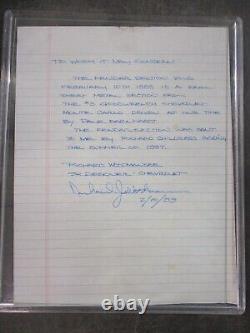 TO WHOM IT MAY CONCERN!
THE FENDER SECTION
FEBRUARY 15TH 1988 IS A REAL
SHEET METAL SECTION FROM
THE #3 GOODWRENCH CHEVROLET
MONTE CARLO DRIVEN AT ONE TIME
BY DALE EARNHARDT.
THE FENDER SECTION WAS SENT
TO ME BY RICHARD CHILDRESS RACING
THE SUMMER OF 1987.
RICHARD
CHEVROLET